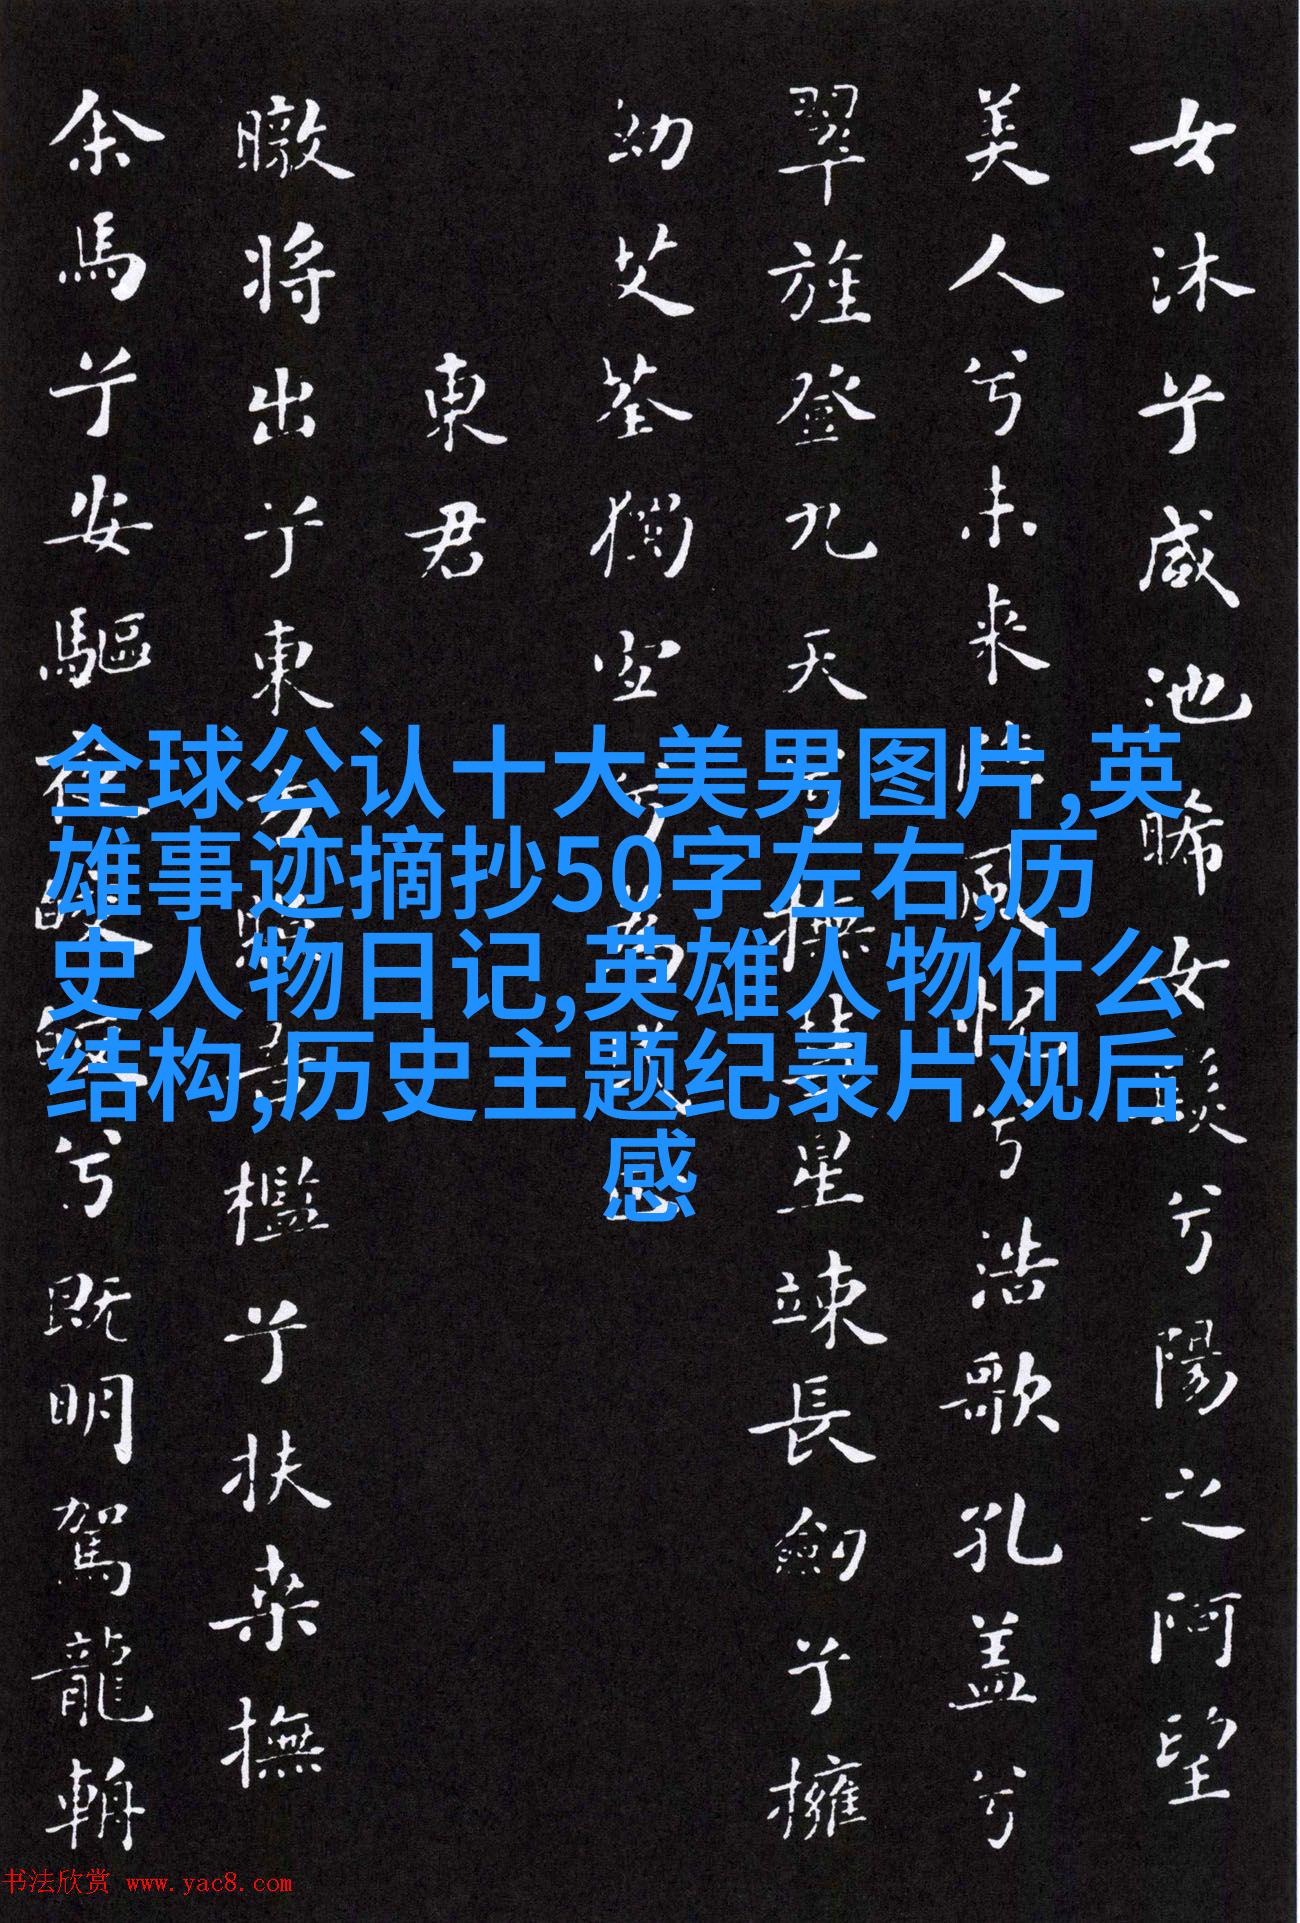 女沐兮咸池晞女髮兮陽之阿望
美人兮未来臨風怳兮浩歌孔盖兮
翠旌登九天兮撫彗星竦長劍兮擁
幼艾荃獨宜兮為民正
東君
暾将出兮東方照吾檻兮扶桑撫
余馬兮安驅夜晈晈兮既明駕龍輈
全球公认十大美男图片,英
雄事迹摘抄50字左右,历
史人物日记,英雄人物什么
结构,历史主题纪录片观后
感
书法欣赏 www.yac8.com